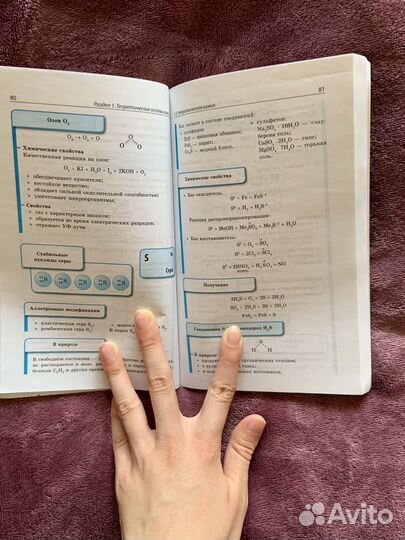 80
Раздел 1. Теоретические основы
Озон O₃
O₃ → O₂ + O
Химические свойства
Качественная реакция на озон:
O₃ + KI + H₂O = I₂ + 2KOH + O₂
обеспечивает красители;
нестойкое вещество;
обладает сильной окислительной способностью;
уничтожает микроорганизмы;
Свойства
газ с характерным запахом;
образуется во время электрических разрядов;
отражает УФ-лучи
Стабильные
нуклиды серы
S
Сера
Аллотропные модификации
пластическая сера
ромбическая сера
В парах
В природе
В свободном состоянии —
не растворяется в воде,
бензоле и других
81
химия
Как элемент в составе соединений:
сульфидов:
ZnS — цинковая обманка;
FeS₂ — пирит;
Cu₂S — медный блеск.
сульфатов:
Na₂SO₄ · 10H₂O — глау-
берова соль;
CaSO₄ · 2H₂O — гипс;
MgSO₄ · 7H₂O — горькая
соль.
Химические свойства
Как окислитель:
S⁰ + Fe = FeS⁻²
S⁰ + H₂ = H₂S⁻²
Реакция диспропорционирования:
Как восстановитель:
Получение
2H₂S + O₂ = 2S + 2H₂O
SO₂ + 2H₂S = 3S + 2H₂O
FeS₂ = FeS + S
Соединения
H₂S
S
H H
В природе
органических отходах;
источниках.
Avito